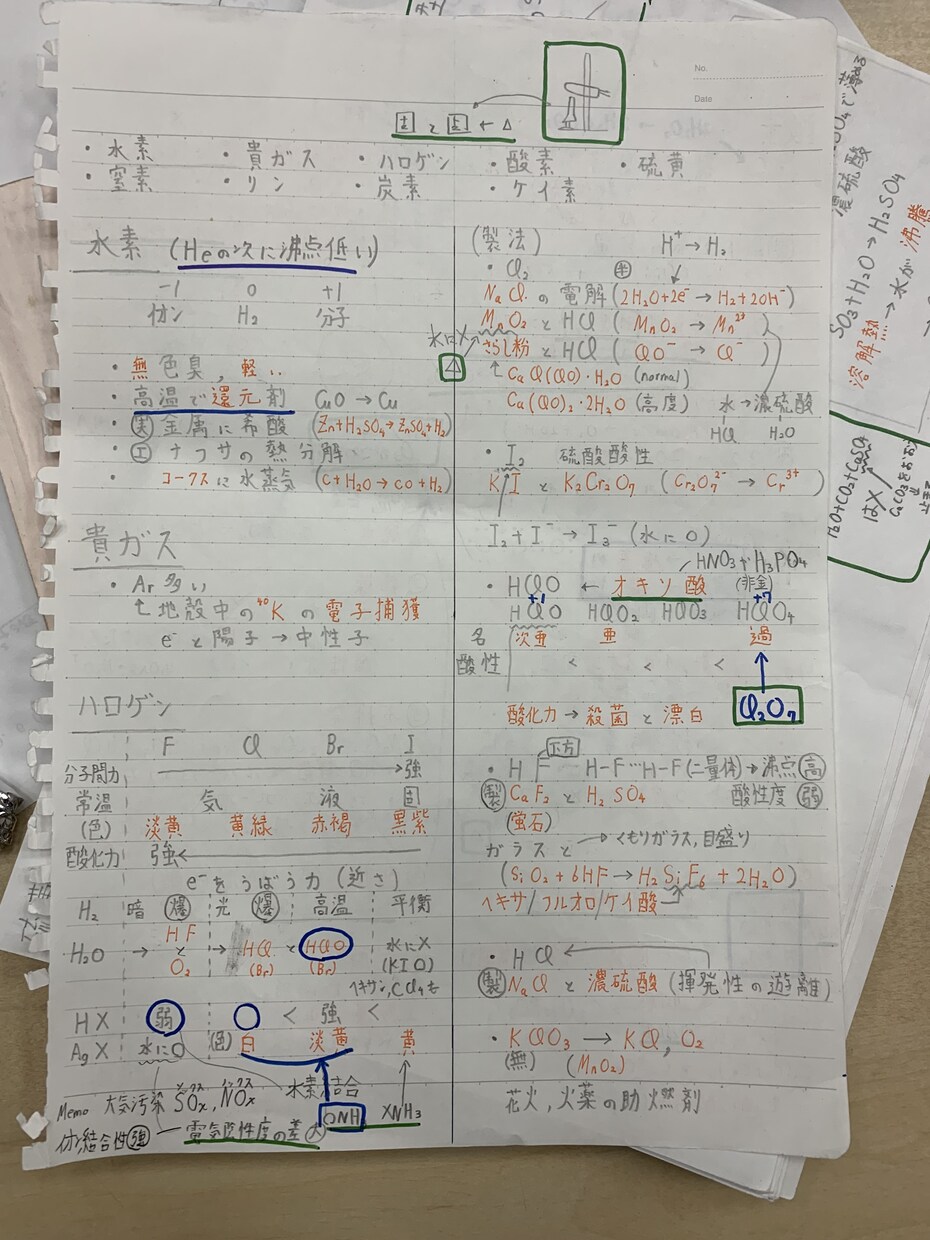 No.
Date
固 と 固 ← △
・水素 ・貴ガス ・ハロゲン ・酸素 ・硫黄
・窒素 ・リン ・炭素 ・ケイ素
水素 (Heの次に沸点低い)
-1 0 +1
イオン H₂ 分子
・無色臭, 軽い
・高温で還元剤 CuO → Cu
・実 金属に希酸 (Zn+H₂SO₄→ZnSO₄+H₂)
・工 ナフサの熱分解
・コークスに水蒸気 (C+H₂O→CO+H₂)
貴ガス
・Ar 多い
↑地殻中の⁴⁰K の電子捕獲
e⁻と陽子→中性子
ハロゲン
F Cl Br I
分子間力 → 強
常温 気 液 固
(色) 淡黄 黄緑 赤褐 黒紫
酸化力 強 ←
e⁻をうばう力 (近さ)
H₂ 暗 爆 光 爆 高温 平衡
H₂O → HF と O₂ → HCl (Br) と HClO (Br) 水に× (KIO)
ヘキサン, CCl₄も
HX 弱 ○ < 強 <
AgX 水に○ (色) 白 淡黄 黄
水素結合
Memo 大気汚染 SOx, NOx
ソックス ノックス
○NH₃ ×NH₃
イオン結合性強 電気陰性度の差 大
(製法) H⁺→H₂
・Cl₂ 半
NaCl の電解 (2H₂O+2e⁻→H₂+2OH⁻)
MnO₂ と HCl (MnO₂→Mn²⁺)
水は×
△
さらし粉 と HCl (ClO⁻→Cl⁻)
↑CaCl(ClO)・H₂O (normal)
Ca(ClO)₂・2H₂O (高度) 水→濃硫酸
HCl H₂O
・I₂ 硫酸酸性
KI と K₂Cr₂O₇ (Cr₂O₇²⁻→Cr³⁺)
I₂+I⁻→I₃⁻ (水に○)
HNO₃や H₃PO₄
・HClO ← オキソ酸 (非金)
+1 +7
HClO HClO₂ HClO₃ HClO₄
名 次亜 亜 過
酸性 < < <
Cl₂O₇
酸化力→殺菌と漂白
・HF H-F…H-F (二量体)→沸点高
製 CaF₂ と H₂SO₄ 酸性度 弱
(蛍石)
ガラスと → くもりガラス, 目盛り
(SiO₂+6HF→H₂SiF₆+2H₂O)
ヘキサ/フルオロ/ケイ酸
・HCl
製 NaCl と 濃硫酸 (揮発性の遊離)
・KClO₃ → KCl, O₂
(無) (MnO₂)
花火, 火薬の助燃剤
SO₃+H₂O→H₂SO₄
溶解熱→水が沸騰
濃硫酸
H₂O+CO₂+CaSO₄
は×